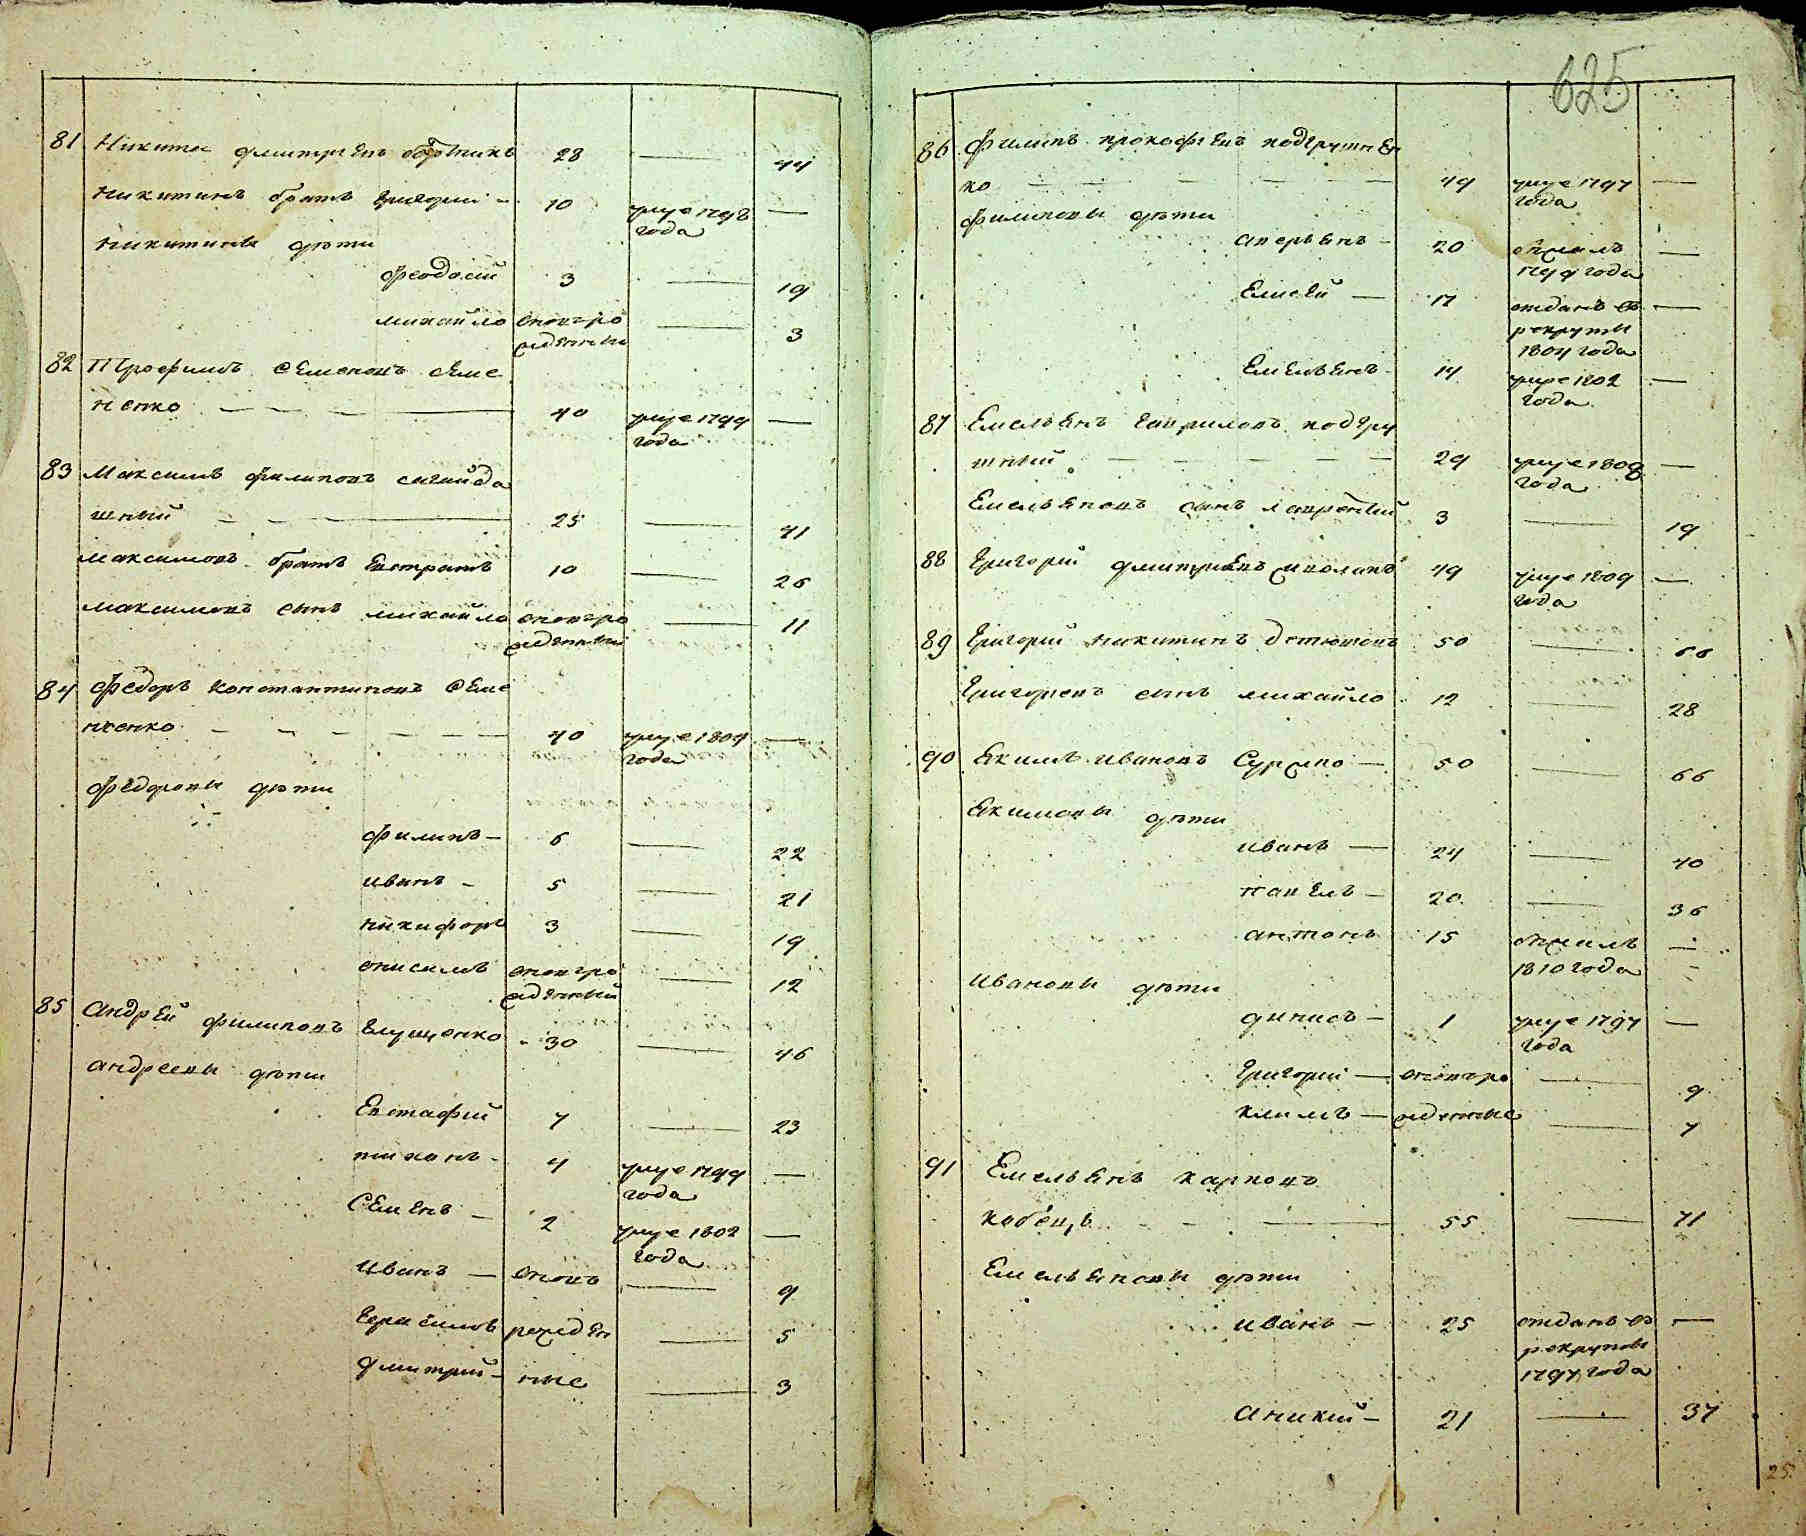 625
81 Никита Дмитриевъ 28 — 44
Никитинъ братъ Григорий - 10 умре 1798 —
года
Никитины дѣти
Феодосий 3 — 19
михайло вновьро — 3
жденный
82 Трофимъ Семеновъ Семе
ненко — — — 40 умре 1799 —
года
83 Максимъ Филиповъ сагайда
шный — — — 25 — 41
Максимовъ братъ Евстратъ 10 — 26
Максимовъ сынъ михайло вновьро — 11
жденный
84 Федоръ Константиновъ Семе
ненко — — — — — 40 умре 1804 —
года
Федоровы дѣти
филипъ — 6 — 22
иванъ - 5 — 21
никифоръ 3 — 19
онисимъ вновьро — 12
жденный
85 Андрей филиповъ Глущенко - 30 — 46
андреевы дѣти
Евстафий 7 — 23
4 умре 1799 —
года
Семенъ — 2 умре 1802 —
года
иванъ — вновь — 9
Герасимъ рожден — 5
дмитрий - ные — 3
86 Филипъ прокофьевъ подгрушнен
ко — — — — — 49 умре 1797 —
года
филиповы дѣти
аверьянъ - 20 бѣжалъ —
1799 года
Елисей — 17 отданъ въ —
рекруты
1804 года
Емельянъ 14 умре 1802 —
года
87 Емельянъ гавриловъ подгру
шный — — — — — 29 умре 1808 —
года
Емельяновъ сынъ лаврентий 3 — 19
88 Григорий дмитриевъ 49 умре 1809 —
года
89 Григорий никитинъ 50 — 66
Григорьевъ сынъ михайло 12 — 28
90 Екимъ ивановъ — 50 — 66
Екимовы дѣти
иванъ — 24 — 40
павелъ — 20 — 36
антонъ 15 бѣжалъ —
1810 года
ивановы дѣти
динисъ — 1 умре 1797 —
года
Григорий — вновьро — 9
климъ — жденные — 7
91 Емельянъ карповъ
кобецъ — — — 55 — 71
Емельяновы дѣти
иванъ — 25 отданъ въ —
рекруты
1797 года
аникий — 21 — 37
25